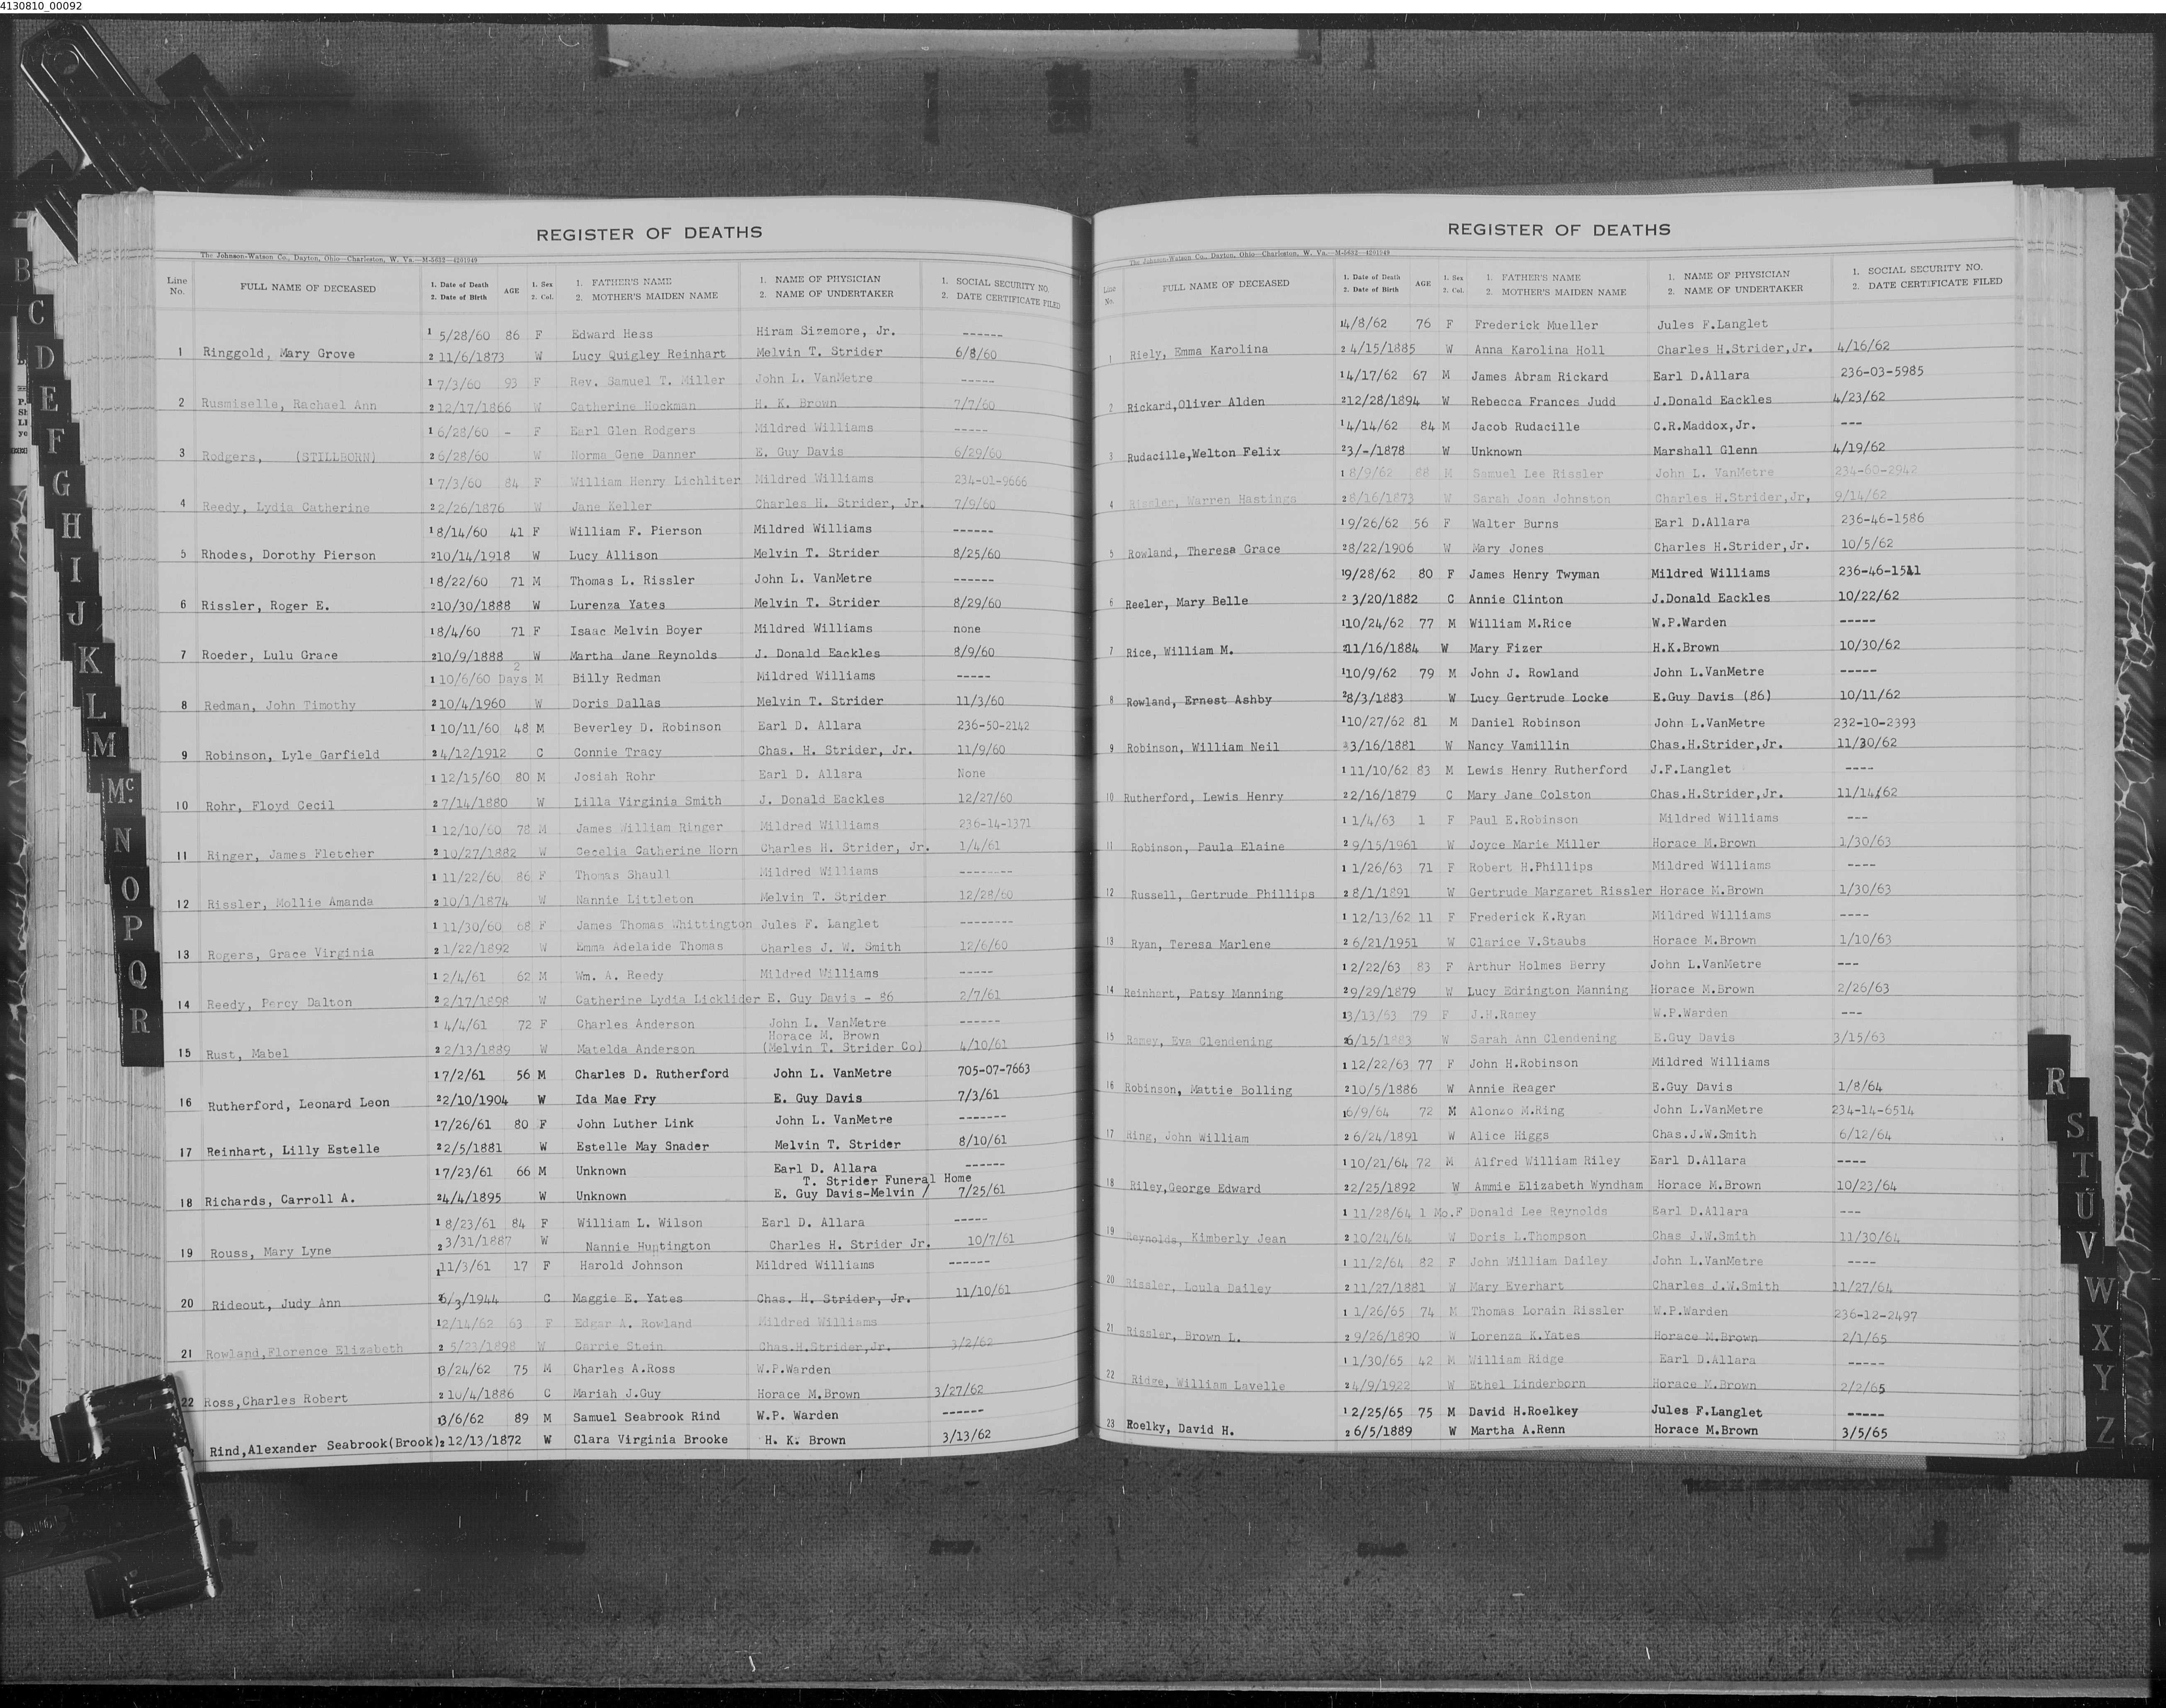 4130810_00092
REGISTER OF DEATHS
The Johnson-Watson Co., Dayton, Ohio—Charleston, W. Va.—M-5632—4201949
Line No. FULL NAME OF DECEASED 1. Date of Death 2. Date of Birth AGE 1. Sex 2. Col. 1. FATHER'S NAME 2. MOTHER'S MAIDEN NAME 1. NAME OF PHYSICIAN 2. NAME OF UNDERTAKER 1. SOCIAL SECURITY NO. 2. DATE CERTIFICATE FILED
1 5/28/60 86 F Edward Hess Hiram Sizemore, Jr. ------
1 Ringgold, Mary Grove 2 11/6/1873 W Lucy Quigley Reinhart Melvin T. Strider 6/8/60
1 7/3/60 93 F Rev. Samuel T. Miller John L. VanMetre -----
2 Rusmiselle, Rachael Ann 2 12/17/1866 W Catherine Hockman H. K. Brown 7/7/60
1 6/28/60 - F Earl Glen Rodgers Mildred Williams -----
3 Rodgers, (STILLBORN) 2 6/28/60 W Norma Gene Danner E. Guy Davis 6/29/60
1 7/3/60 84 F William Henry Lichliter Mildred Williams 234-01-9666
4 Reedy, Lydia Catherine 2 2/26/1876 W Jane Keller Charles H. Strider, Jr. 7/9/60
1 8/14/60 41 F William F. Pierson Mildred Williams ------
5 Rhodes, Dorothy Pierson 2 10/14/1918 W Lucy Allison Melvin T. Strider 8/25/60
1 8/22/60 71 M Thomas L. Rissler John L. VanMetre ------
6 Rissler, Roger E. 2 10/30/1888 W Lurenza Yates Melvin T. Strider 8/29/60
1 8/4/60 71 F Isaac Melvin Boyer Mildred Williams none
7 Roeder, Lulu Grace 2 10/9/1888 W Martha Jane Reynolds J. Donald Eackles 8/9/60
1 10/6/60 2 Days M Billy Redman Mildred Williams -----
8 Redman, John Timothy 2 10/4/1960 W Doris Dallas Melvin T. Strider 11/3/60
1 10/11/60 48 M Beverley D. Robinson Earl D. Allara 236-50-2142
9 Robinson, Lyle Garfield 2 4/12/1912 C Connie Tracy Chas. H. Strider, Jr. 11/9/60
1 12/15/60 80 M Josiah Rohr Earl D. Allara None
10 Rohr, Floyd Cecil 2 7/14/1880 W Lilla Virginia Smith J. Donald Eackles 12/27/60
1 12/10/60 78 M James William Ringer Mildred Williams 236-14-1371
11 Ringer, James Fletcher 2 10/27/1882 W Cecelia Catherine Horn Charles H. Strider, Jr. 1/4/61
1 11/22/60 86 F Thomas Shaull Mildred Williams --------
12 Rissler, Mollie Amanda 2 10/1/1874 W Nannie Littleton Melvin T. Strider 12/28/60
1 11/30/60 68 F James Thomas Whittington Jules F. Langlet --------
13 Rogers, Grace Virginia 2 1/22/1892 W Emma Adelaide Thomas Charles J. W. Smith 12/6/60
1 2/4/61 62 M Wm. A. Reedy Mildred Williams -----
14 Reedy, Percy Dalton 2 2/17/1898 W Catherine Lydia Licklider E. Guy Davis - 86 2/7/61
1 4/4/61 72 F Charles Anderson John L. VanMetre ------
Horace M. Brown
15 Rust, Mabel 2 2/13/1889 W Matelda Anderson (Melvin T. Strider Co) 4/10/61
1 7/2/61 56 M Charles D. Rutherford John L. VanMetre 705-07-7663
16 Rutherford, Leonard Leon 2 2/10/1904 W Ida Mae Fry E. Guy Davis 7/3/61
1 7/26/61 80 F John Luther Link John L. VanMetre -------
17 Reinhart, Lilly Estelle 2 2/5/1881 W Estelle May Snader Melvin T. Strider 8/10/61
1 7/23/61 66 M Unknown Earl D. Allara ------
T. Strider Funeral Home
18 Richards, Carroll A. 2 4/4/1895 W Unknown E. Guy Davis-Melvin / 7/25/61
1 8/23/61 84 F William L. Wilson Earl D. Allara -----
19 Rouss, Mary Lyne 2 3/31/1887 W Nannie Huntington Charles H. Strider Jr. 10/7/61
1 11/3/61 17 F Harold Johnson Mildred Williams ------
20 Rideout, Judy Ann 2 6/3/1944 C Maggie E. Yates Chas. H. Strider, Jr. 11/10/61
1 2/14/62 63 F Edgar A. Rowland Mildred Williams
21 Rowland,Florence Elizabeth 2 5/23/1898 W Carrie Stein Chas.H.Strider,Jr. 3/2/62
1 3/24/62 75 M Charles A.Ross W.P.Warden
22 Ross,Charles Robert 2 10/4/1886 C Mariah J.Guy Horace M.Brown 3/27/62
1 3/6/62 89 M Samuel Seabrook Rind W.P. Warden ------
Rind,Alexander Seabrook(Brook) 2 12/13/1872 W Clara Virginia Brooke H. K. Brown 3/13/62
REGISTER OF DEATHS
The Johnson-Watson Co., Dayton, Ohio—Charleston, W. Va.—M-5632—4201949
Line No. FULL NAME OF DECEASED 1. Date of Death 2. Date of Birth AGE 1. Sex 2. Col. 1. FATHER'S NAME 2. MOTHER'S MAIDEN NAME 1. NAME OF PHYSICIAN 2. NAME OF UNDERTAKER 1. SOCIAL SECURITY NO. 2. DATE CERTIFICATE FILED
1 4/8/62 76 F Frederick Mueller Jules F.Langlet
1 Riely, Emma Karolina 2 4/15/1885 W Anna Karolina Holl Charles H.Strider,Jr. 4/16/62
1 4/17/62 67 M James Abram Rickard Earl D.Allara 236-03-5985
2 Rickard,Oliver Alden 2 12/28/1894 W Rebecca Frances Judd J.Donald Eackles 4/23/62
1 4/14/62 84 M Jacob Rudacille C.R.Maddox,Jr. ---
3 Rudacille,Welton Felix 2 3/-/1878 W Unknown Marshall Glenn 4/19/62
1 8/9/62 88 M Samuel Lee Rissler John L. VanMetre 234-60-2942
4 Rissler, Warren Hastings 2 8/16/1873 W Sarah Joan Johnston Charles H.Strider,Jr, 9/14/62
1 9/26/62 56 F Walter Burns Earl D.Allara 236-46-1586
5 Rowland, Theresa Grace 2 8/22/1906 W Mary Jones Charles H.Strider,Jr. 10/5/62
1 9/28/62 80 F James Henry Twyman Mildred Williams
6 Reeler, Mary Belle 2 3/20/1882 C Annie Clinton J.Donald Eackles 10/22/62
1 10/24/62 77 M William M.Rice W.P.Warden -----
7 Rice, William M. 2 11/16/1884 W Mary Fizer H.K.Brown 10/30/62
1 10/9/62 79 M John J. Rowland John L.VanMetre -----
8 Rowland, Ernest Ashby 2 8/3/1883 W Lucy Gertrude Locke E.Guy Davis (86) 10/11/62
1 10/27/62 81 M Daniel Robinson John L.VanMetre 232-10-2393
9 Robinson, William Neil 2 3/16/1881 W Nancy Vamillin Chas.H.Strider,Jr. 11/30/62
1 11/10/62 83 M Lewis Henry Rutherford J.F.Langlet ----
10 Rutherford, Lewis Henry 2 2/16/1879 C Mary Jane Colston Chas.H.Strider,Jr. 11/14/62
1 1/4/63 1 F Paul E.Robinson Mildred Williams ---
11 Robinson, Paula Elaine 2 9/15/1961 W Joyce Marie Miller Horace M.Brown 1/30/63
1 1/26/63 71 F Robert H.Phillips Mildred Williams ----
12 Russell, Gertrude Phillips 2 8/1/1891 W Gertrude Margaret Rissler Horace M.Brown 1/30/63
1 12/13/62 11 F Frederick K.Ryan Mildred Williams ----
13 Ryan, Teresa Marlene 2 6/21/1951 W Clarice V.Staubs Horace M.Brown 1/10/63
1 2/22/63 83 F Arthur Holmes Berry John L.VanMetre ---
14 Reinhart, Patsy Manning 2 9/29/1879 W Lucy Edrington Manning Horace M.Brown 2/26/63
1 3/13/63 79 F J.H.Ramey W.P.Warden ---
15 Ramey, Eva Clendening 2 6/15/1883 W Sarah Ann Clendening E.Guy Davis 3/15/63
1 12/22/63 77 F John H.Robinson Mildred Williams
16 Robinson, Mattie Bolling 2 10/5/1886 W Annie Reager E.Guy Davis 1/8/64
1 6/9/64 72 M Alonzo M.Ring John L.VanMetre 234-14-6514
17 Ring, John William 2 6/24/1891 W Alice Higgs Chas.J.W.Smith 6/12/64
1 10/21/64 72 M Alfred William Riley Earl D.Allara ----
18 Riley,George Edward 2 2/25/1892 W Ammie Elizabeth Wyndham Horace M.Brown 10/23/64
1 11/28/64 1 Mo.F Donald Lee Reynolds Earl D.Allara ---
19 Reynolds, Kimberly Jean 2 10/24/64 W Doris L.Thompson Chas J.W.Smith 11/30/64
1 11/2/64 82 F John William Dailey John L.VanMetre ----
20 Rissler, Loula Dailey 2 11/27/1881 W Mary Everhart Charles J.W.Smith 11/27/64
1 1/26/65 74 M Thomas Lorain Rissler W.P.Warden 236-12-2497
21 Rissler, Brown L. 2 9/26/1890 W Lorenza K.Yates Horace M.Brown 2/1/65
1 1/30/65 42 M William Ridge Earl D.Allara -----
22 Ridge, William Lavelle 2 4/9/1922 W Ethel Linderborn Horace M.Brown 2/2/65
1 2/25/65 75 M David H.Roelkey Jules F.Langlet -----
23 Roelky, David H. 2 6/5/1889 W Martha A.Renn Horace M.Brown 3/5/65
B
C
D
E
F
G
H
I
J
K
L
M
Mc.
N
O
P
Q
R
R
S
T
U
V
W
X
Y
Z